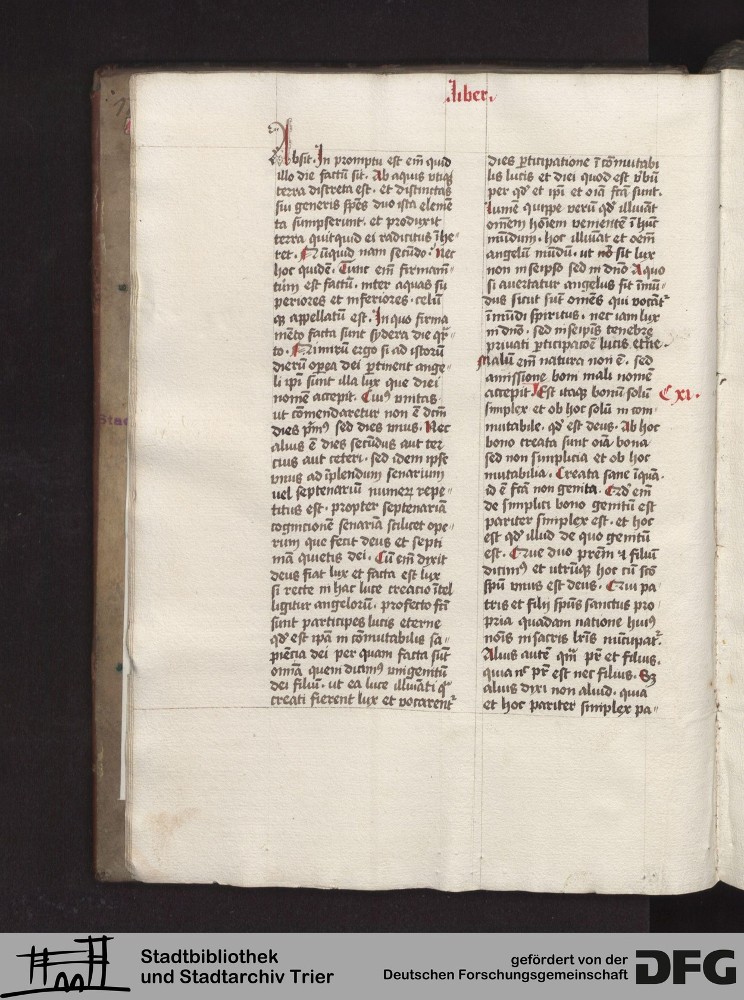 .liber.
Absit. In promptu est em̄ quid
illo die factū sit. Ab aquis utiq̄
terra discreta est. et distinctas
sui generis sp̄es duo ista elemē
ta sumpserunt. et produxit
terra quitquid ei radicitus īhe
ret. Nūquid nam secūdo: Nec
hoc quidē. Tunc em̄ firmam̄
tūm est factū. inter aquas su
periores et inferiores. celū
q̄ appellatū est. In quo firma
mēto facta sunt sydera die q̄r
to. Nimirū ergo si ad istorū
dierū opera dei p̄tinent ange
li ip̄i sunt illa lux que diei
nomē accepit. Cui⁹ unitas
ut cōmendaretur non ē dc̄m
dies p̄m⁹ sed dies unus. Nec
alius ē dies secūdus aut ter
cius aut ceteri. sed idem ipse
unus ad īplendum senarium
uel septenariū numerꝝ repe
titus est. propter septenariā
cognicionē senariā scilicet ope
rum que fecit deus et septi
mā quietis dei. Cū em̄ dixit
deus fiat lux et facta est lux
si recte in hac luce creacio ītel
ligitur angelorū. profecto fc̄i
sunt participes lucis eterne
qd̄ est ip̄a incōmutabilis sa
piēcia dei per quam facta sūt
omīa quem dicim⁹ unigenitū
dei filiū. ut ea luce illūiati q̄
creati fierent lux et vocarent᷑
dies p̄ticipatione īcōmutabi
lis lucis et diei quod est v̄bū
per qd̄ et ip̄i et oīa fc̄a sunt.
lumē quippe verū qd̄ illūiat
omēm hoīem venientē ī hūc
mūdum. hoc illūiat et oēm
angelū mūdū. ut sit lux
non in seipso sed in dn̄o A quo
si auertatur angelus fit īmū
dus sicut sūt omēs qui vocāt᷑
īmūdi spiritus. nec iam lux
in dn̄o. sed in seipīs tenebre
privati p̄ticipatōē lucis et̄ne.
Malū em̄ natura non ē. sed
amissione boni mali nomē
accepit Est itaq̄ bonū solū C xi.
simplex et ob hoc solū in com
mutabile. qd̄ est deus. Ab hoc
bono creata sunt oīa bona
sed non simplicia et ob hoc
mutabilia. Creata sane īquā.
id ē fc̄a non genita. Qd̄ em̄
de simplici bono genitū est
pariter simplex est. et hoc
est qd̄ illud de quo genitū
est. Que duo prēm ⁊ filiū
dicim⁹ et utrūq̄ hoc cū sc̄o
sp̄u unus est deus. Qui pa
tris et filij sp̄us sanctus pro
pria quadam natione hui⁹
noīs in sacris lrīs nūcupat᷑.
Alius autē qm̄ pr̄ et filius.
quia nc̄ pr̄ est nec filius. Sꝫ
alius dixi non aliud. quia
et hoc pariter simplex pa
Stadtbibliothek
und Stadtarchiv Trier
gefördert von der
Deutschen Forschungsgemeinschaft
DFG